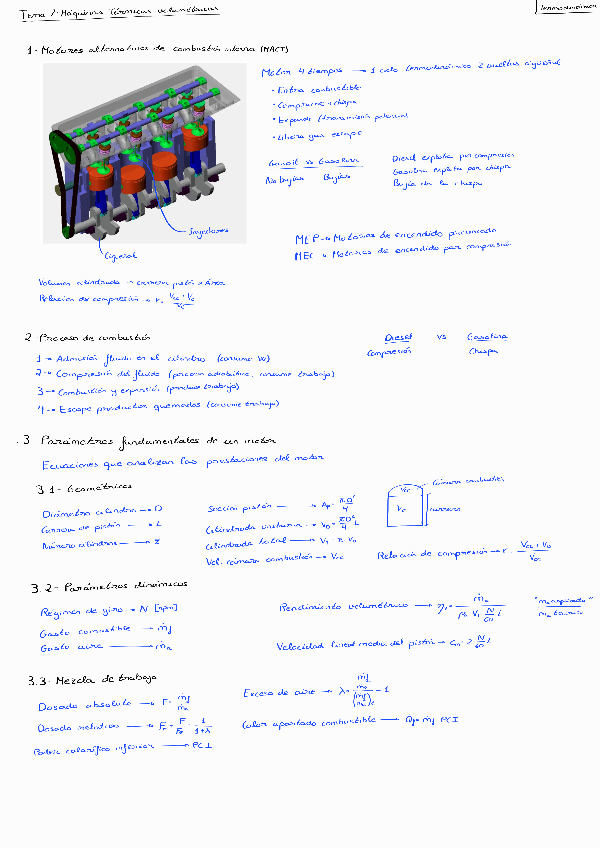 Tema 7: Máquinas térmicas volumétricas
Termodinámica
1- Motores alternativos de combustión interna (MACI)
Motor 4 tiempos → 1 ciclo termodinámico 2 vueltas cigüeñal
• Entra combustible
• Comprime + chispa
• Expande (transmisión potencia)
• Libera gas escape
Gasoil vs Gasolina
No bujías Bujías
Diesel explota por compresión
Gasolina explota por chispa
Bujía da la chispa
Inyectores
Cigüeñal
MEP → Motores de encendido provocado
MEC → Motores de encendido por compresión
Volumen cilindrada → carrera pistón × Área
Relación de compresión → r =
2 Proceso de combustión
Diesel vs Gasolina
Compresión Chispa
1 → Admisión fluido en el cilindro (consume W)
2 → Compresión del fluido (proceso adiabático, consume trabajo)
3 → Combustión y expansión (produce trabajo)
4 → Escape productos quemados (consume trabajo)
3 Parámetros fundamentales de un motor
Ecuaciones que analizan las prestaciones del motor
3.1- Geométricos
Diámetro cilindro → D
Carrera de pistón → L
Número cilindros → z
Sección pistón → Ap = πD²/4
Cilindrada unitaria → VD = πD²/4 L
Cilindrada total → VT = z · VD
Vol. cámara combustión → Vcc
Cámara combustión
Vcc
VD
carrera
Relación de compresión → r = (Vcc + VD)/Vcc
3.2- Parámetros dinámicos
Régimen de giro → N [rpm]
Gasto combustible → ṁf
Gasto aire → ṁa
Rendimiento volumétrico → ηv = ṁa/(ρa VT N/60 i)
"ma aspirada"
ma teórica
Velocidad lineal media del pistón → cm = 2 N/60 L
3.3- Mezcla de trabajo
Dosado absoluto → F = ṁf/ṁa
Dosado relativo → Fr = F/Fe = 1/(1+λ)
Poder calorífico inferior → PCI
Exceso de aire → λ = - 1
Calor aportado combustible → Q = ṁf PCI